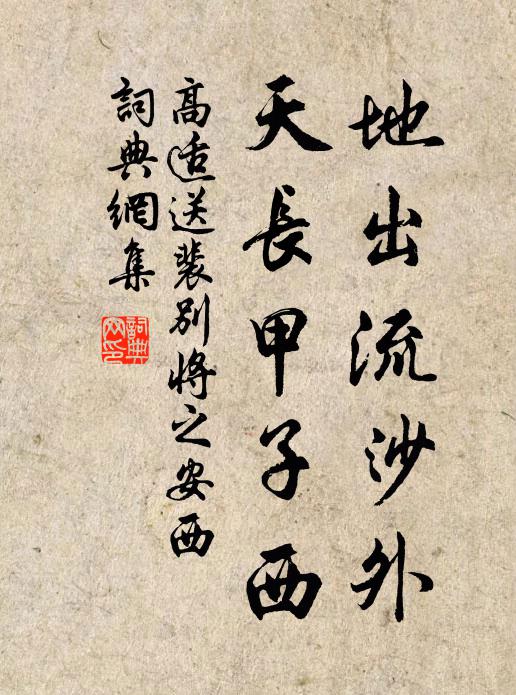 地出流沙外
天長甲子西
高适送裴別將之安西
詞典網集
詞典網印